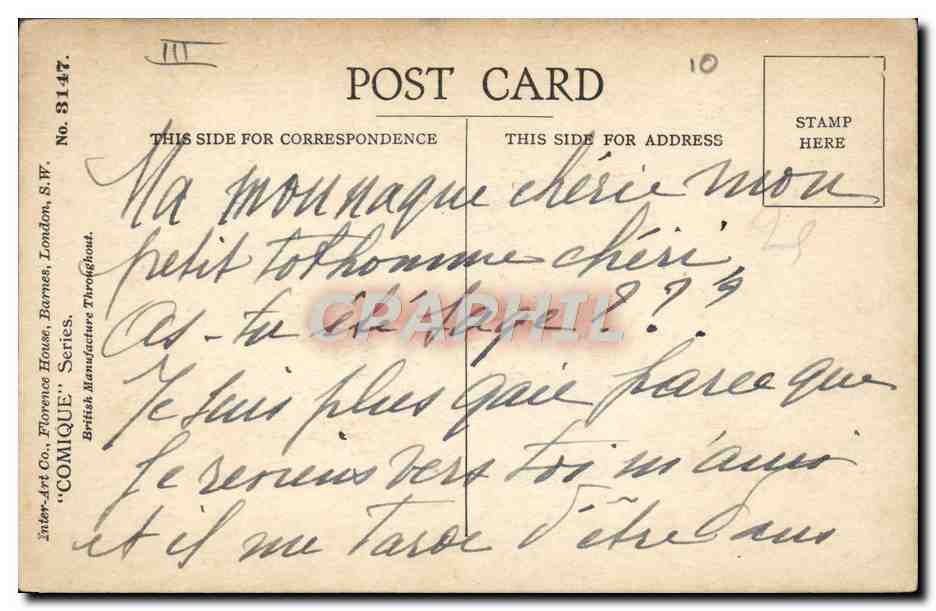 III
10
POST CARD
THIS SIDE FOR CORRESPONDENCE
THIS SIDE FOR ADDRESS
STAMP
HERE
No. 3147.
Inter-Art Co., Florence House, Barnes, London, S.W.
"COMIQUE" Series.
British Manufacture Throughout.
Ma mounaque chérie mon
petit tothomme chéri
As-tu été sage ? ? ?
Je suis plus gaie parce que
je reviens vers toi m'ami
et il me tarde d'être dans
CPAPHIL